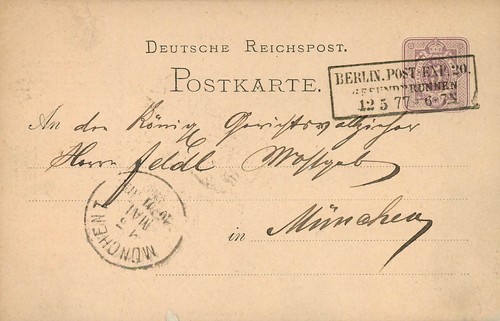 DEUTSCHE REICHSPOST.
POSTKARTE.
BERLIN.POST EXP. 20.
GESUNDBRUNNEN
12 5 77 6-7N
An den König Gerichtsvollzieher
Herrn
in München
MÜNCHEN I
MAI